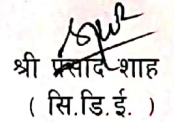 श्री प्रसाद शाह
( सि.डि.ई. )